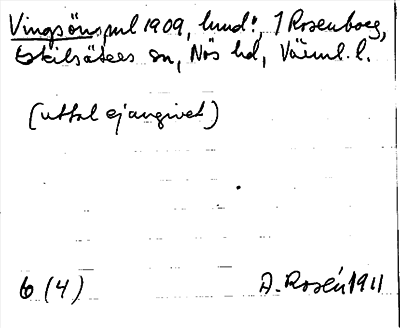 Vingsöns, jul 1909, hmd!, 1 Rosenborg,
Eskilsäters sn, Näs hd, Värml. l.
(uttal ej angivet)
6 (4) A. Rosén 1911